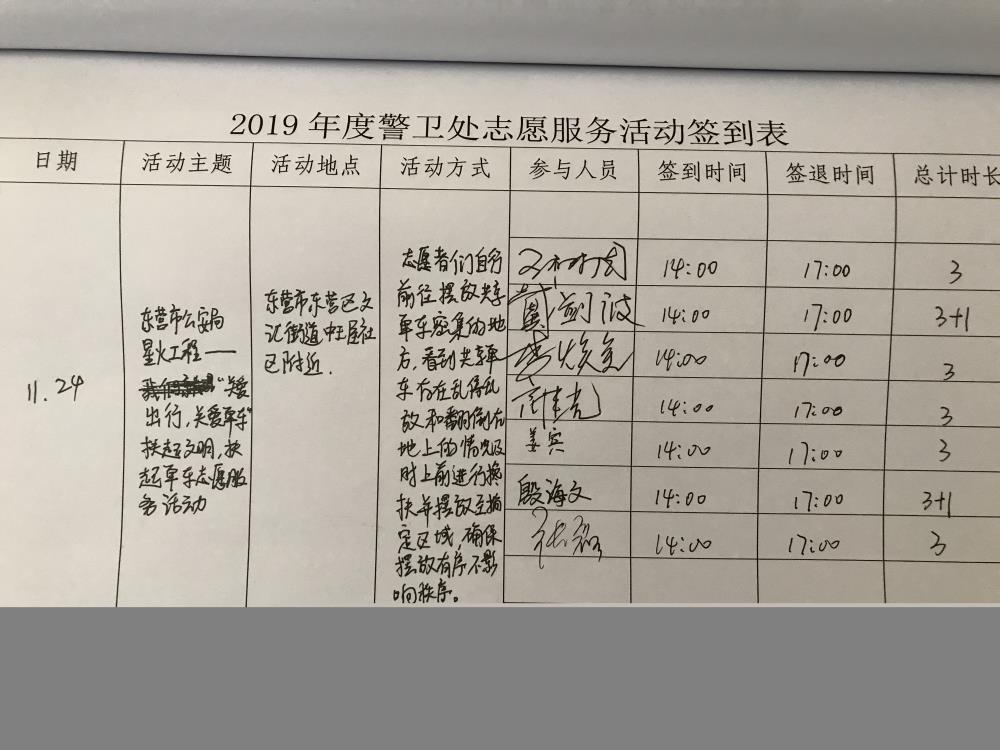 2019 年度警卫处志愿服务活动签到表
日期 活动主题 活动地点 活动方式 参与人员 签到时间 签退时间 总计时长
11.24
东营市公安局
星火工程——
"关爱
出行,关爱单车"
扶起文明,扶
起单车志愿服
务活动
东营市东营区文
汇街道中王屋社
区附近.
志愿者们自行
前往摆放共享
单车密集的地
方,看到共享单
车存在乱停乱
放和翻倒在
地上的情况及
时上前进行搀
扶并摆放至指
定区域,确保
摆放有序不影
响秩序。
14:00 17:00 3
戴剑波 14:00 17:00 3+1
14:00 17:00 3
14:00 17:00 3
姜宾 14:00 17:00 3
殷海文 14:00 17:00 3+1
张磊 14:00 17:00 3